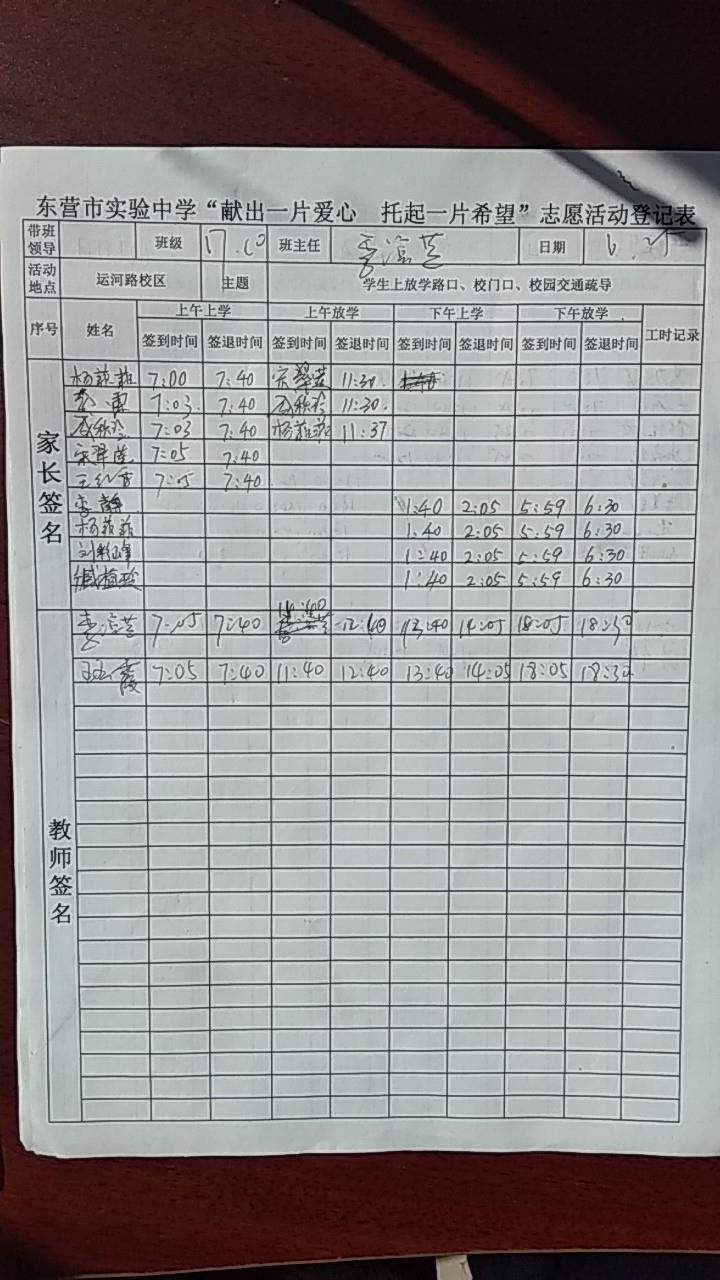 东营市实验中学“献出一片爱心 托起一片希望”志愿活动登记表
带班领导 班级 17.10 班主任 日期
活动地点 运河路校区 主题 学生上放学路口、校门口、校园交通疏导
序号 姓名 上午上学 上午放学 下午上学 下午放学 工时记录
签到时间 签退时间 签到时间 签退时间 签到时间 签退时间 签到时间 签退时间
家长签名
7:00 7:40 11:30
7:03 7:40 11:30
7:03 7:40 11:37
7:05 7:40
7:05 7:40
李静 1:40 2:05 5:59 6:30
杨菲菲 1:40 2:05 5:59 6:30
1:40 2:05 5:59 6:30
1:40 2:05 5:59 6:30
教师签名
7:05 7:40 12:40 13:40 14:05 18:05
7:05 7:40 11:40 12:40 13:40 14:05 18:05 18:30